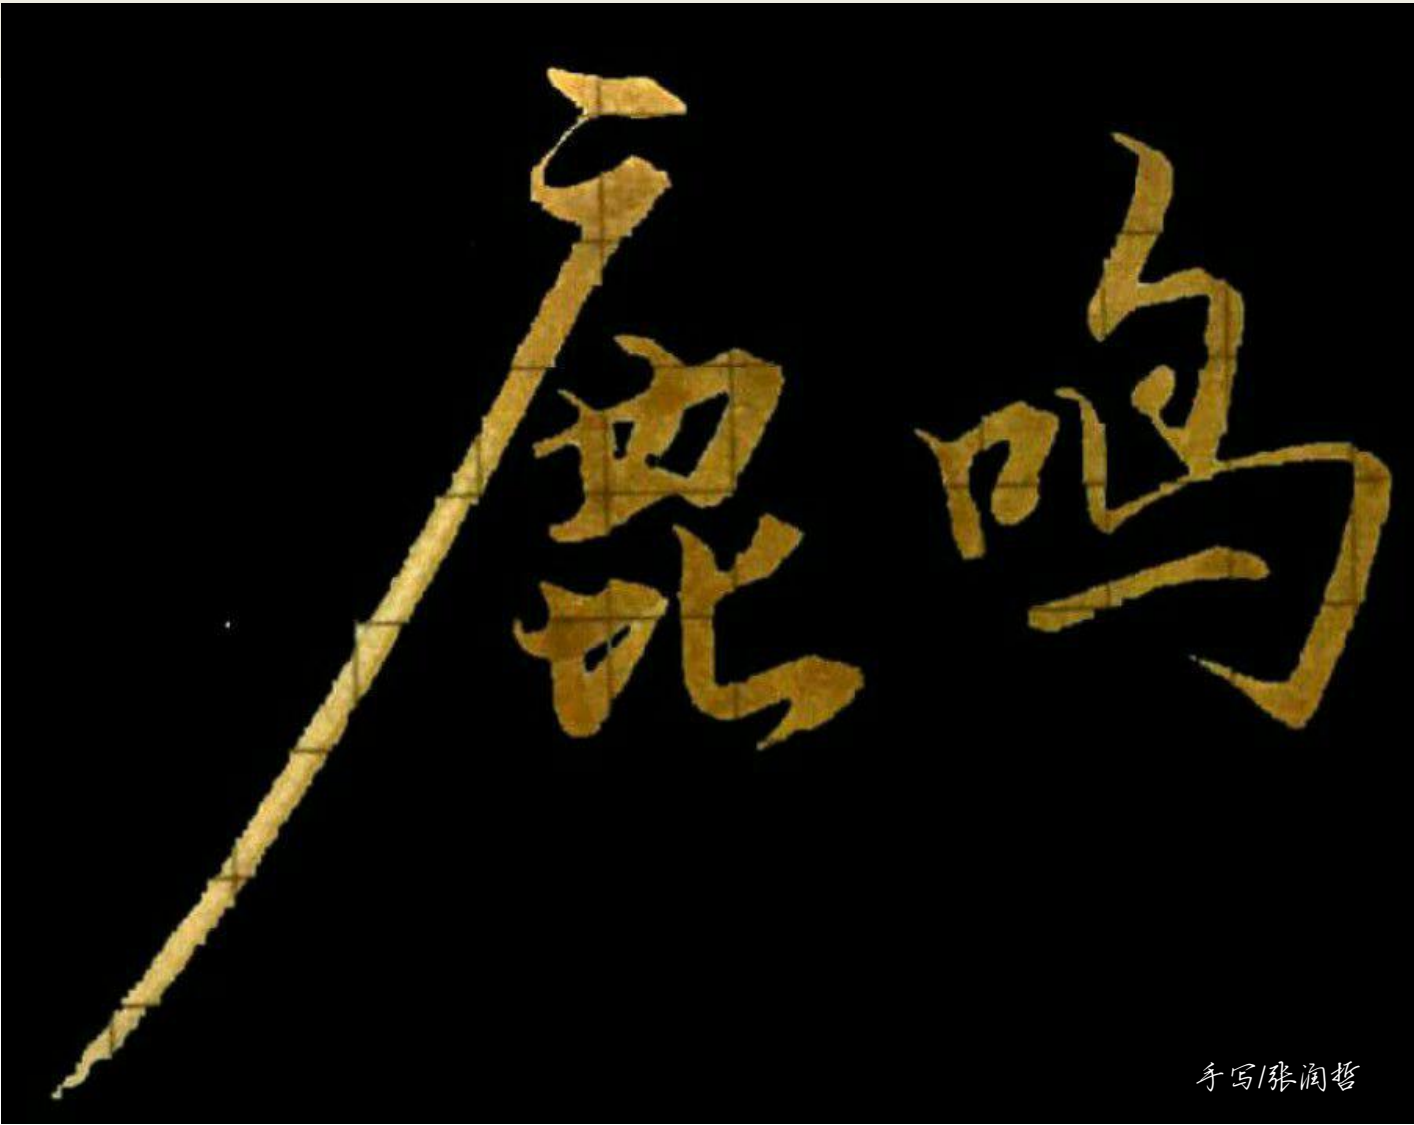 鹿鸣
手写/张润哲